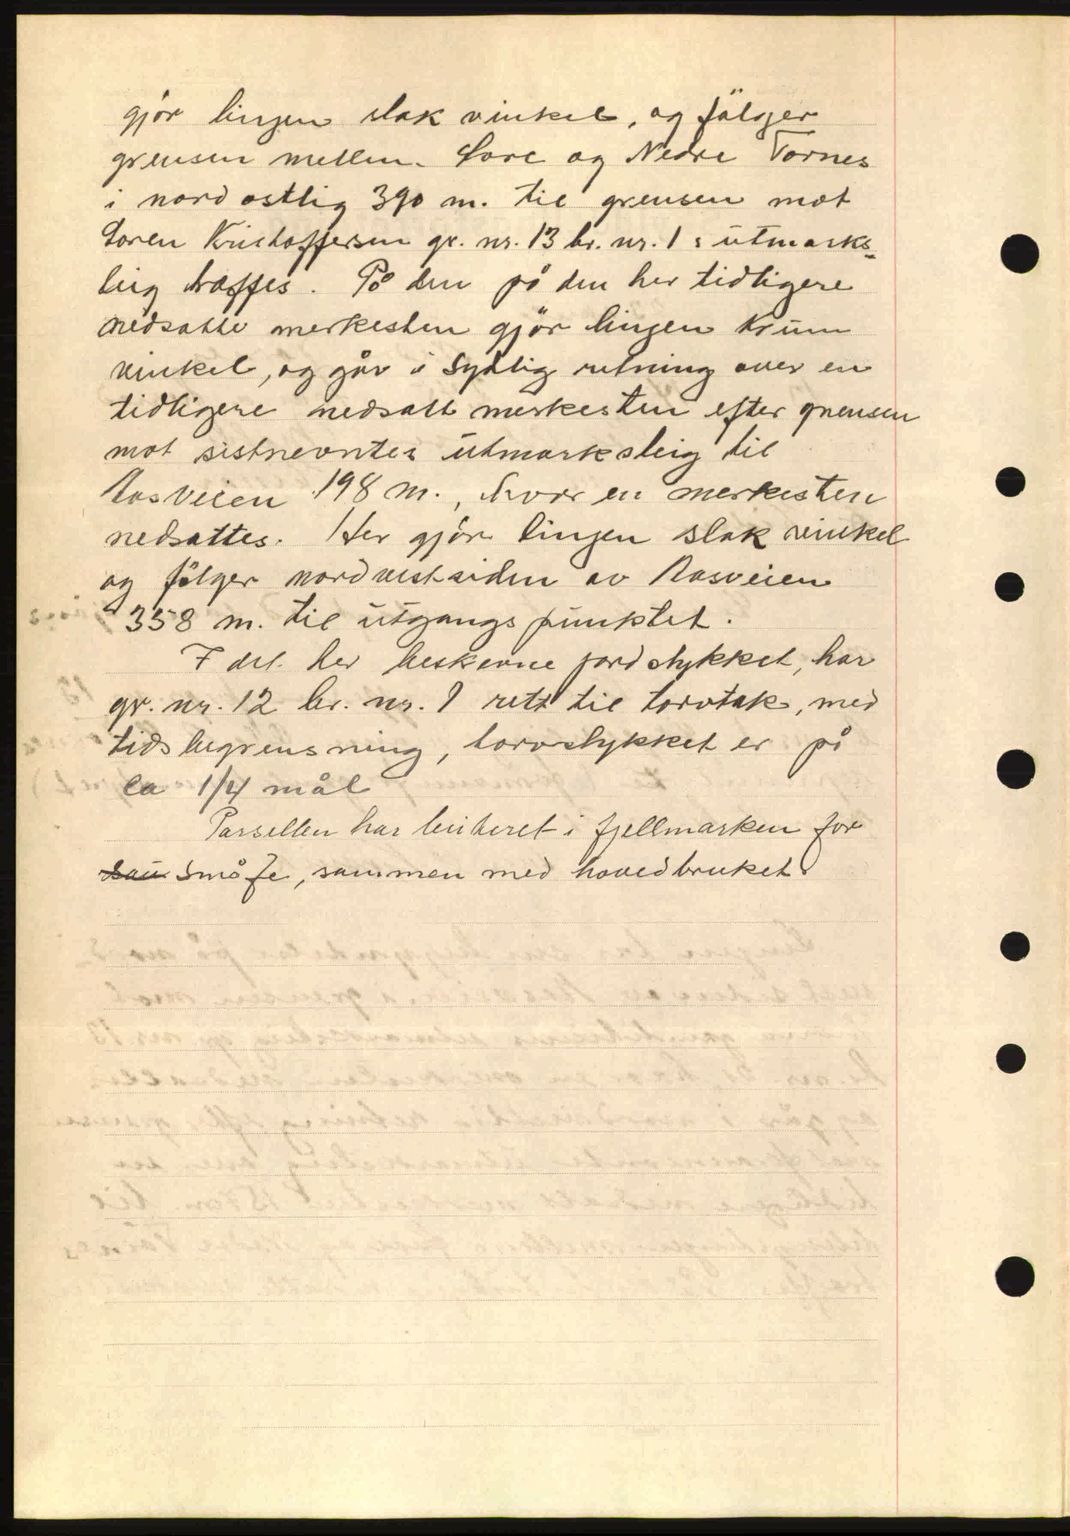 gjör linjen slak vinkel, og fölger
grensen mellem Sore og Nedre Tornes
i nord ostlig 390 m. til grensen mot
Soren Kristoffersen gr. nr. 13 br. nr. 1 s utmarks-
leig træffes. På den på den her tidligere
nedsatte merkesten gjör linjen krum
vinkel, og går i Sydlig retning over en
tidligere nedsatt merkesten efter grensen
mot sistnevntes utmarksleig til
Aasveien 198 m., hvor en merkesten
nedsattes. Her gjör linjen slak vinkel
og fölger nordvestsiden av Aasveien
358 m. til utgangspunktet.
I det her beskevne jordstykket, har
gr. nr. 12 br. nr. 1 rett til torvtak, med
tidsbegrensning, torvstykket er på
ca 1/4 mål
Parsellen har beiteret i fjellmarken for
sau småfe, sammen med hovedbruket.